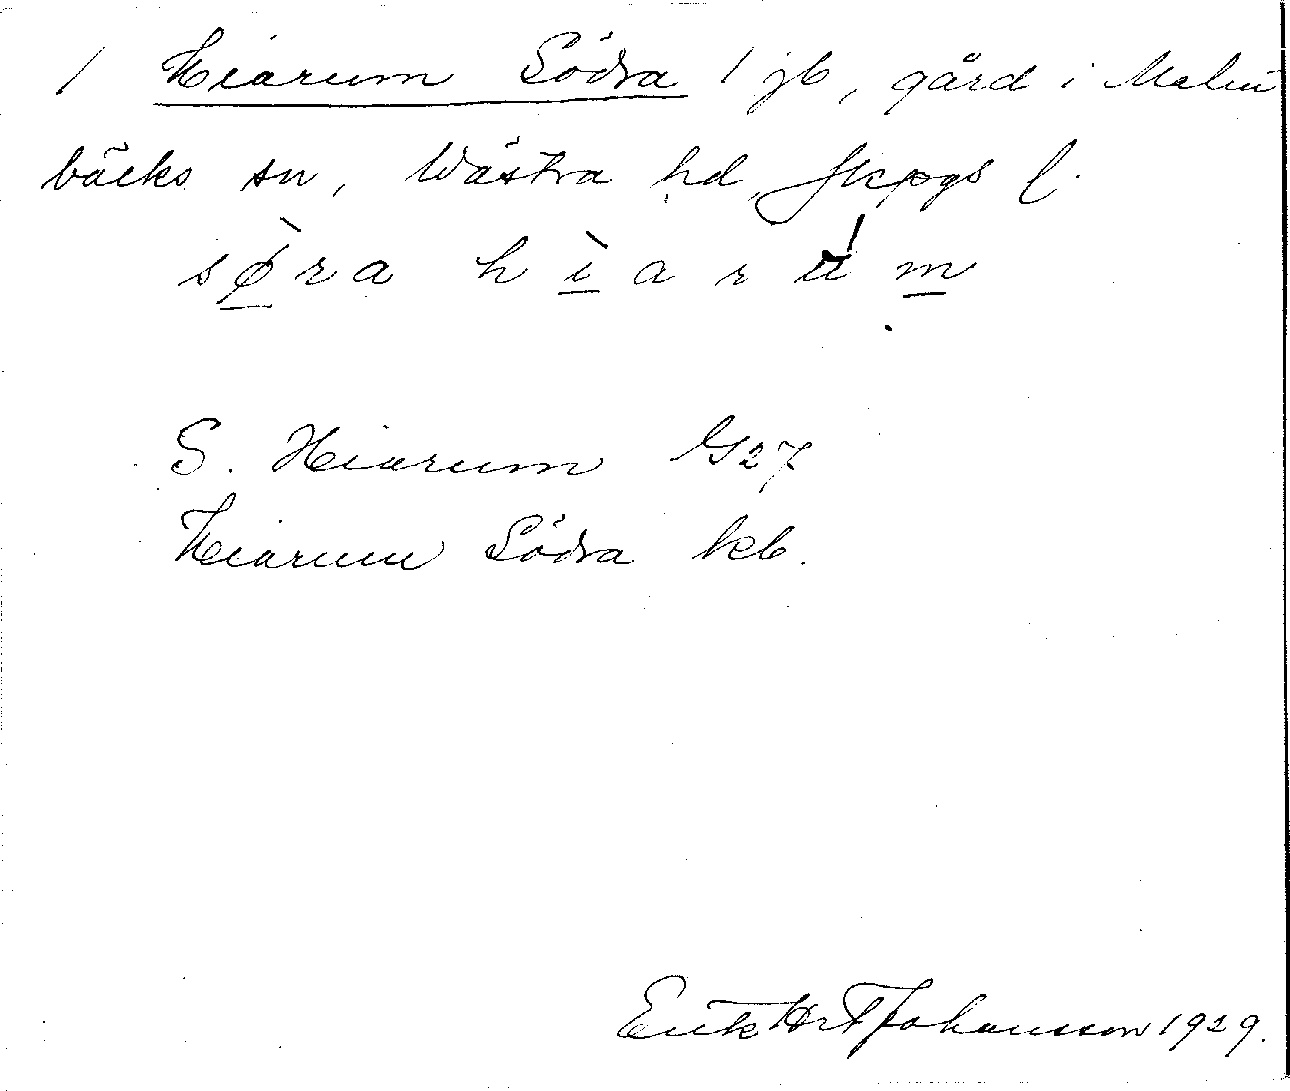 / Hiarum Södra / jb, gård i Malm
bäcks sn, Wästra hd, Jkpgs l.
sø̀ra hìarum
S. Hiarum G27
Hiarum Södra kb.
Erik Johansson 1929.